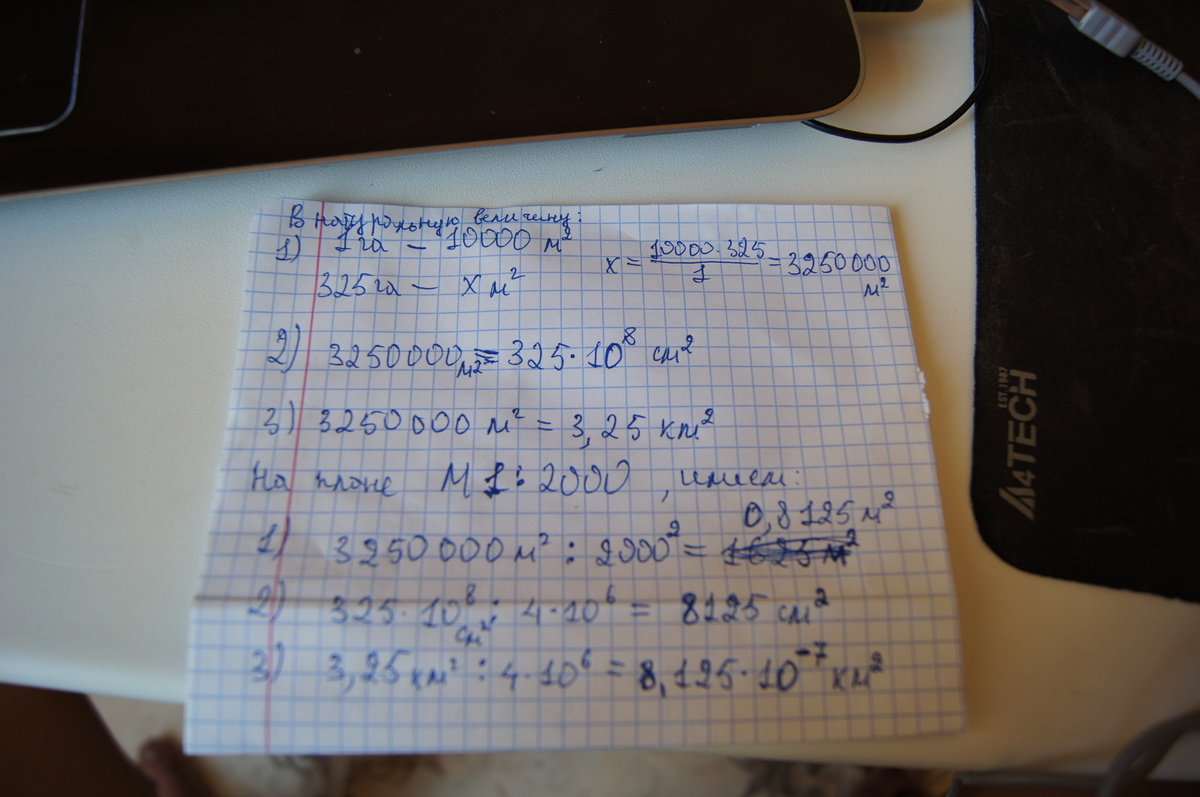 В натуральную величину:
1) 1 га – 10000 м² x = 10000·325/1 = 3250000 м²
325 га – X м²
2) 3250000 м² = 325·10⁸ см²
3) 3250000 м² = 3,25 км²
На плане М 1:2000, имеем:
1) 3250000 м² : 2000² = 0,8125 м²
2) 325·10⁸ см² : 4·10⁶ = 8125 см²
3) 3,25 км² : 4·10⁶ = 8,125·10⁻⁷ км²
A4TECH
EST. 1987